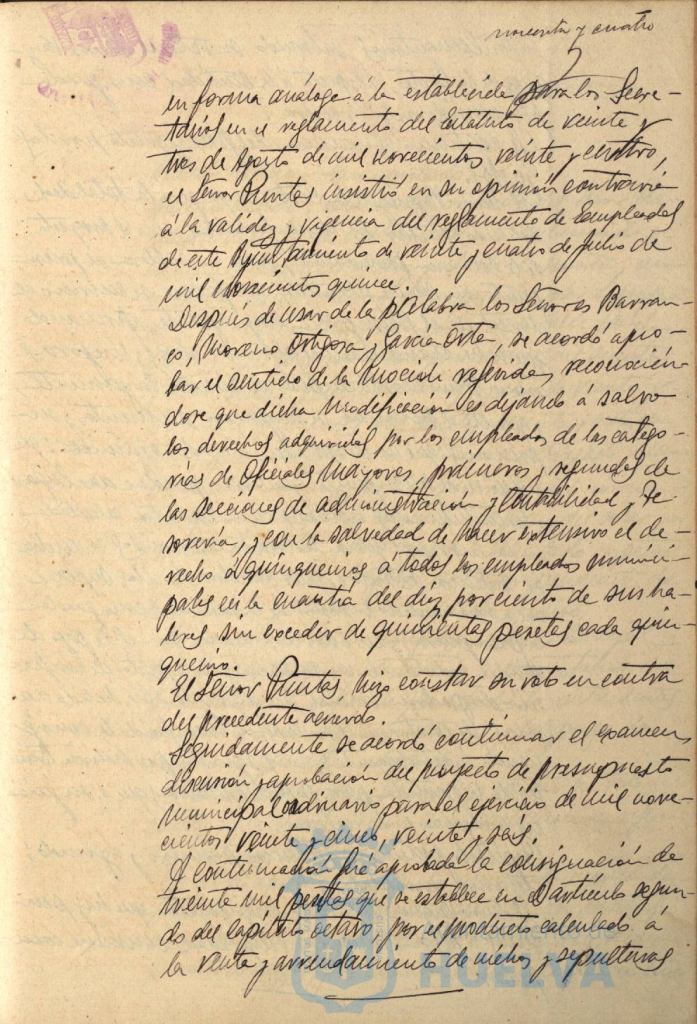 noventa y cuatro
en forma análoga á la establecida para los Secre-
tarios en el reglamento del Estatuto de veinte y
tres de Agosto de mil novecientos veinte y cuatro,
el Señor Puntas insistió en su opinión contraria
á la validez y vigencia del reglamento de Empleados
de este Ayuntamiento de veinte y cuatro de Julio de
mil novecientos quince.
Después de usar de la palabra los Señores Barran-
co, Moreno Ortigosa y García Orta, se acordó apro-
bar el sentido de la moción referida, reconocién-
dose que dicha modificación es dejando á salvo
los derechos adquiridos por los empleados de las catego-
rías de Oficiales Mayores, primeros y segundos de
las secciones de administración y contabilidad y Te-
sorería, y con la salvedad de hacer extensivo el de-
recho á quinquenios á todos los empleados munici-
pales en la cuantía del diez por ciento de sus ha-
beres sin exceder de quinientas pesetas cada quin-
quenio.
El Señor Puntas, hizo constar su voto en contra
del precedente acuerdo.
Seguidamente se acordó continuar el examen,
discusión y aprobación del proyecto de presupuesto
municipal ordinario para el ejercicio de mil nove-
cientos veinte y cinco, veinte y seis.
A continuación fué aprobada la consignación de
treinta mil pesetas que se establece en el artículo segun-
do del capítulo octavo, por el producto calculado á
la venta y arrendamiento de nichos y sepulturas
HUELVA